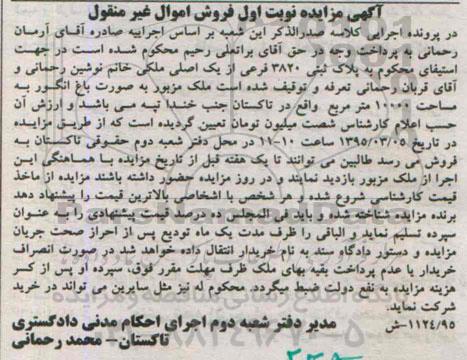 آگهی مزایده نوبت اول فروش اموال غیر منقول
در پرونده اجرایی کلاسه صدرالذکر این شعبه بر اساس اجراییه صادره آقای آرمسان
رحمانی به پرداخت وجه در حق آقای براتعلی رحیم محکوم شده است در جهت
استیفای محکوم به پلاک ثبتی ۳۸۲۰ فرعی از یک اصلی ملکی خانم نوشین رحمانی و
آقای قربان رحمانی تعرفه و توقیف شده است ملک مزبور به صورت باغ انگور به
مساحت ۱۰۰۰۱ متر مربع واقع در تاکستان جنب خندا تپه می باشد و ارزش آن
حسب اعلام کارشناس شصت میلیون تومان تعیین گردیده است که از طریق مزایده
در تاریخ ۱۳۹۵/۰۳/۰۵ ساعت ۱۰-۱۱ در محل دفتر شعبه دوم حقوقی تاکستان به
فروش می رسد طالبین می توانند تا یک هفته قبل از تاریخ مزایده با هماهنگی این
اجرا از ملک مزبور بازدید نمایند و در روز مزایده حضور داشته باشند مزایده از ماخذ
قیمت کارشناسی شروع می شود و هر شخص یا اشخاصی بالاترین قیمت را پیشنهاد دهد
برنده مزایده شناخته شده و باید فی المجلس ده درصد قیمت پیشنهادی را به عنوان
سپرده تسلیم نماید و الباقی را ظرف مدت یک ماه تودیع پس از احراز صحت جریان
مزایده و دستور دادگاه سند به نام خریدار انتقال داده خواهد شد در صورت انصراف
خریدار یا عدم پرداخت بقیه بهای ملک ظرف مهلت مقرر فوق، سپرده او پس از کسر
هزینه مزایده به نفع دولت ضبط میگردد. محکوم له نیز مثل سایرین می تواند در خرید
شرکت نماید.
۱۱۲۴/۹۵-ش مدیر دفتر شعبه دوم اجرای احکام مدنی دادگستری
تاکستان- محمد رحمانی